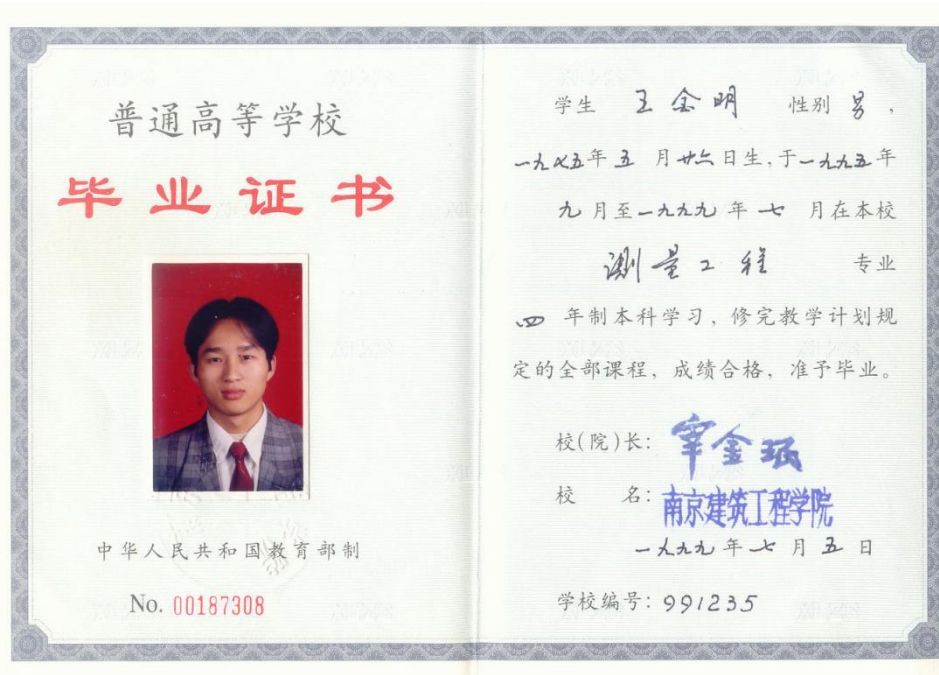 普通高等学校
毕业证书
中华人民共和国教育部制
No. 00187308
学生 王金明 性别 男，
一九七五年五月廿六日生，于一九九五年
九月至一九九九年七月在本校
测量工程 专业
四年制本科学习，修完教学计划规
定的全部课程，成绩合格，准予毕业。
校(院)长：宰金珉
校 名：南京建筑工程学院
一九九九年七月五日
学校编号：991235